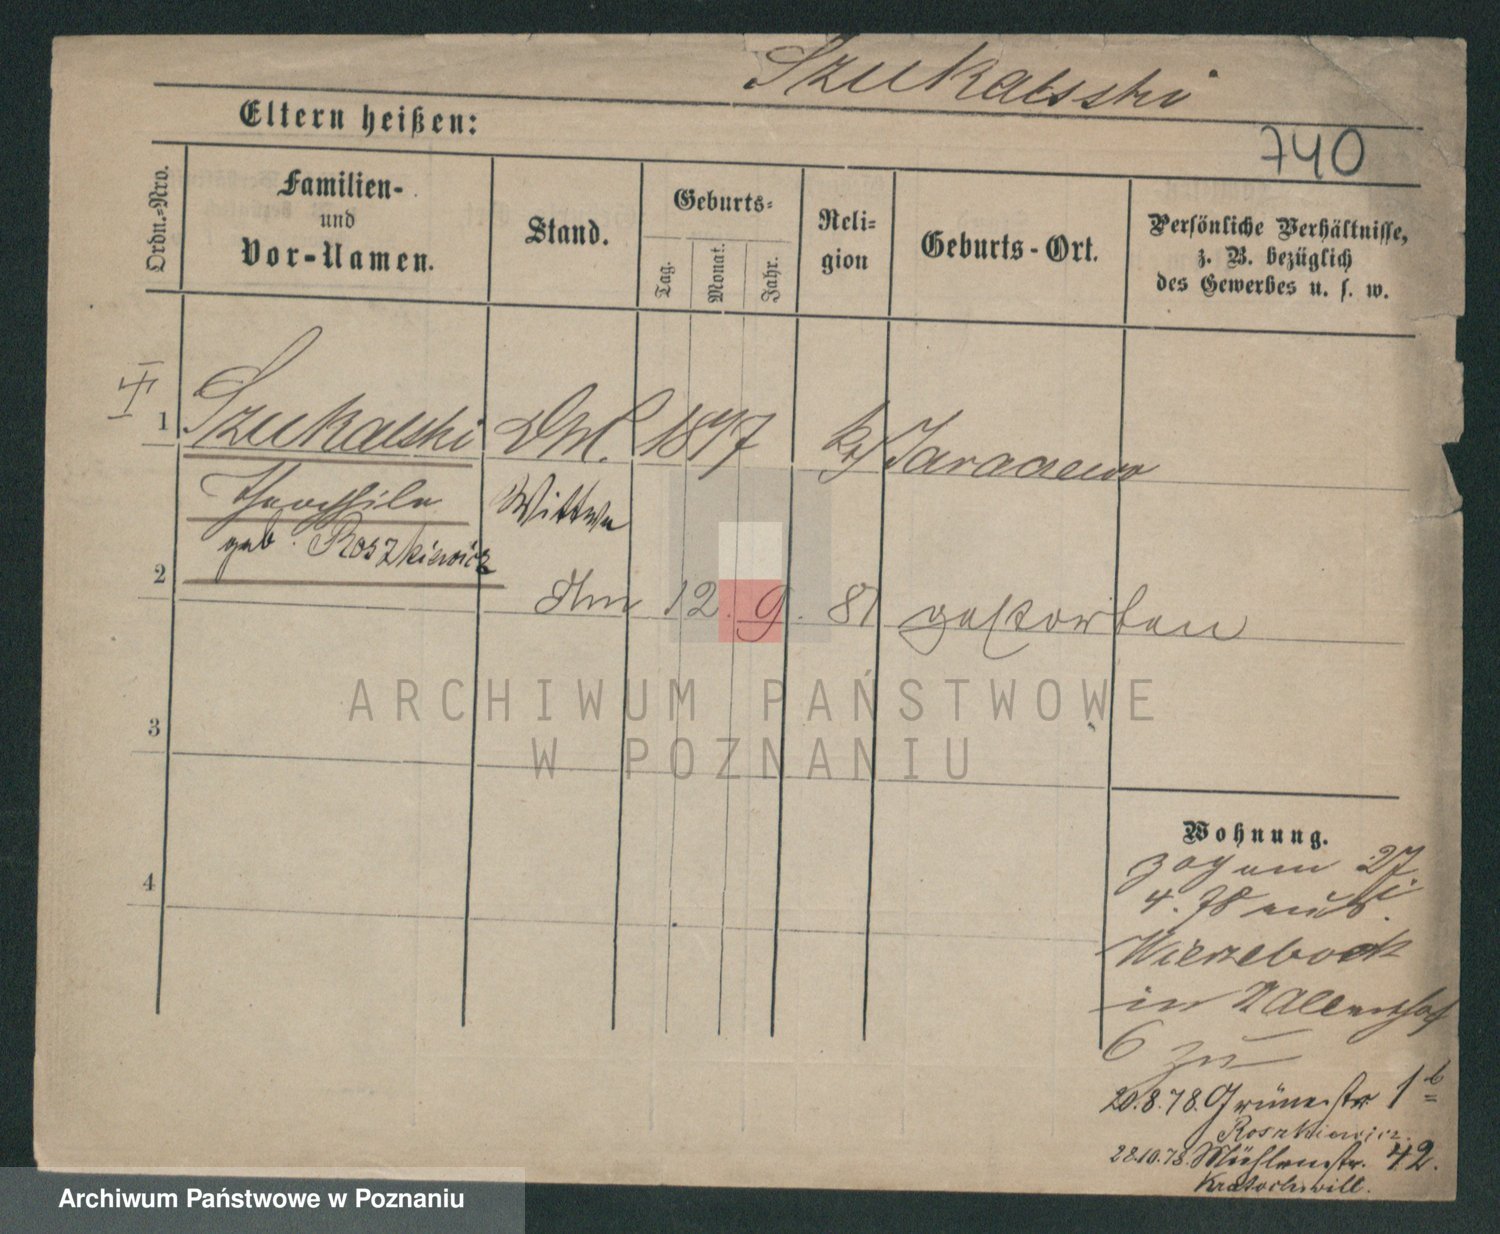 Szukalski
Eltern heißen:
740
Ordn.-Nro.
Familien-
und
Vor-Namen.
Stand.
Geburts-
Tag.
Monat.
Jahr.
Reli-
gion
Geburts-Ort.
Persönliche Verhältnisse,
z. B. bezüglich
des Gewerbes u. s. w.
1
Szukalski
1817
Jaraczewo
Theophila
Wittwe
geb. Roszkiewicz
2
Am 12. 9. 81 gestorben
3
4
ARCHIWUM PAŃSTWOWE
W POZNANIU
Wohnung.
zog am 27
4. 78 aus
Wierzebock
in
6 zu
20.8.78. Grünestr 1b
Roszkiewicz.
28.10.78. Mühlenstr. 42.
Kratochwill.
Archiwum Państwowe w Poznaniu